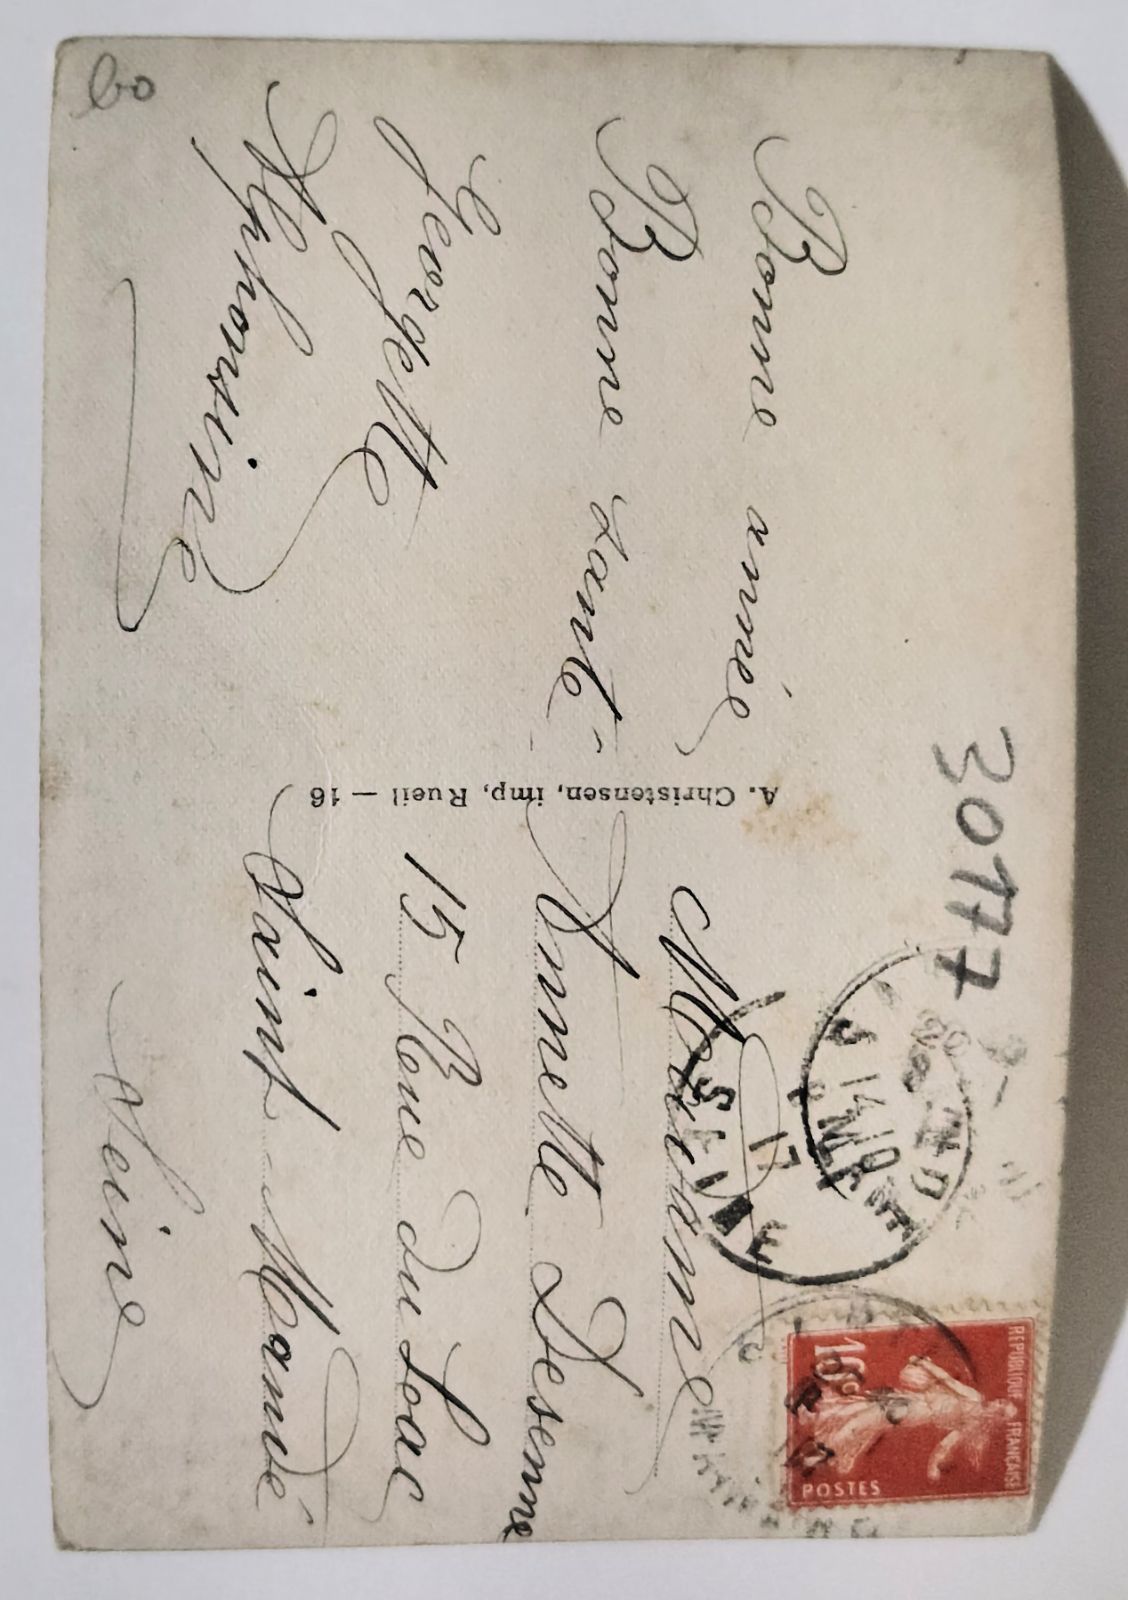 60
Bonne année
Bonne santé
Georgette
Alphonsine
A. Christensen, imp, Rueil — 16
30177
Madame
Annette Desenne
15 Rue du Lac
Saint-Mandé
Seine
RÉPUBLIQUE FRANÇAISE
10c
POSTES